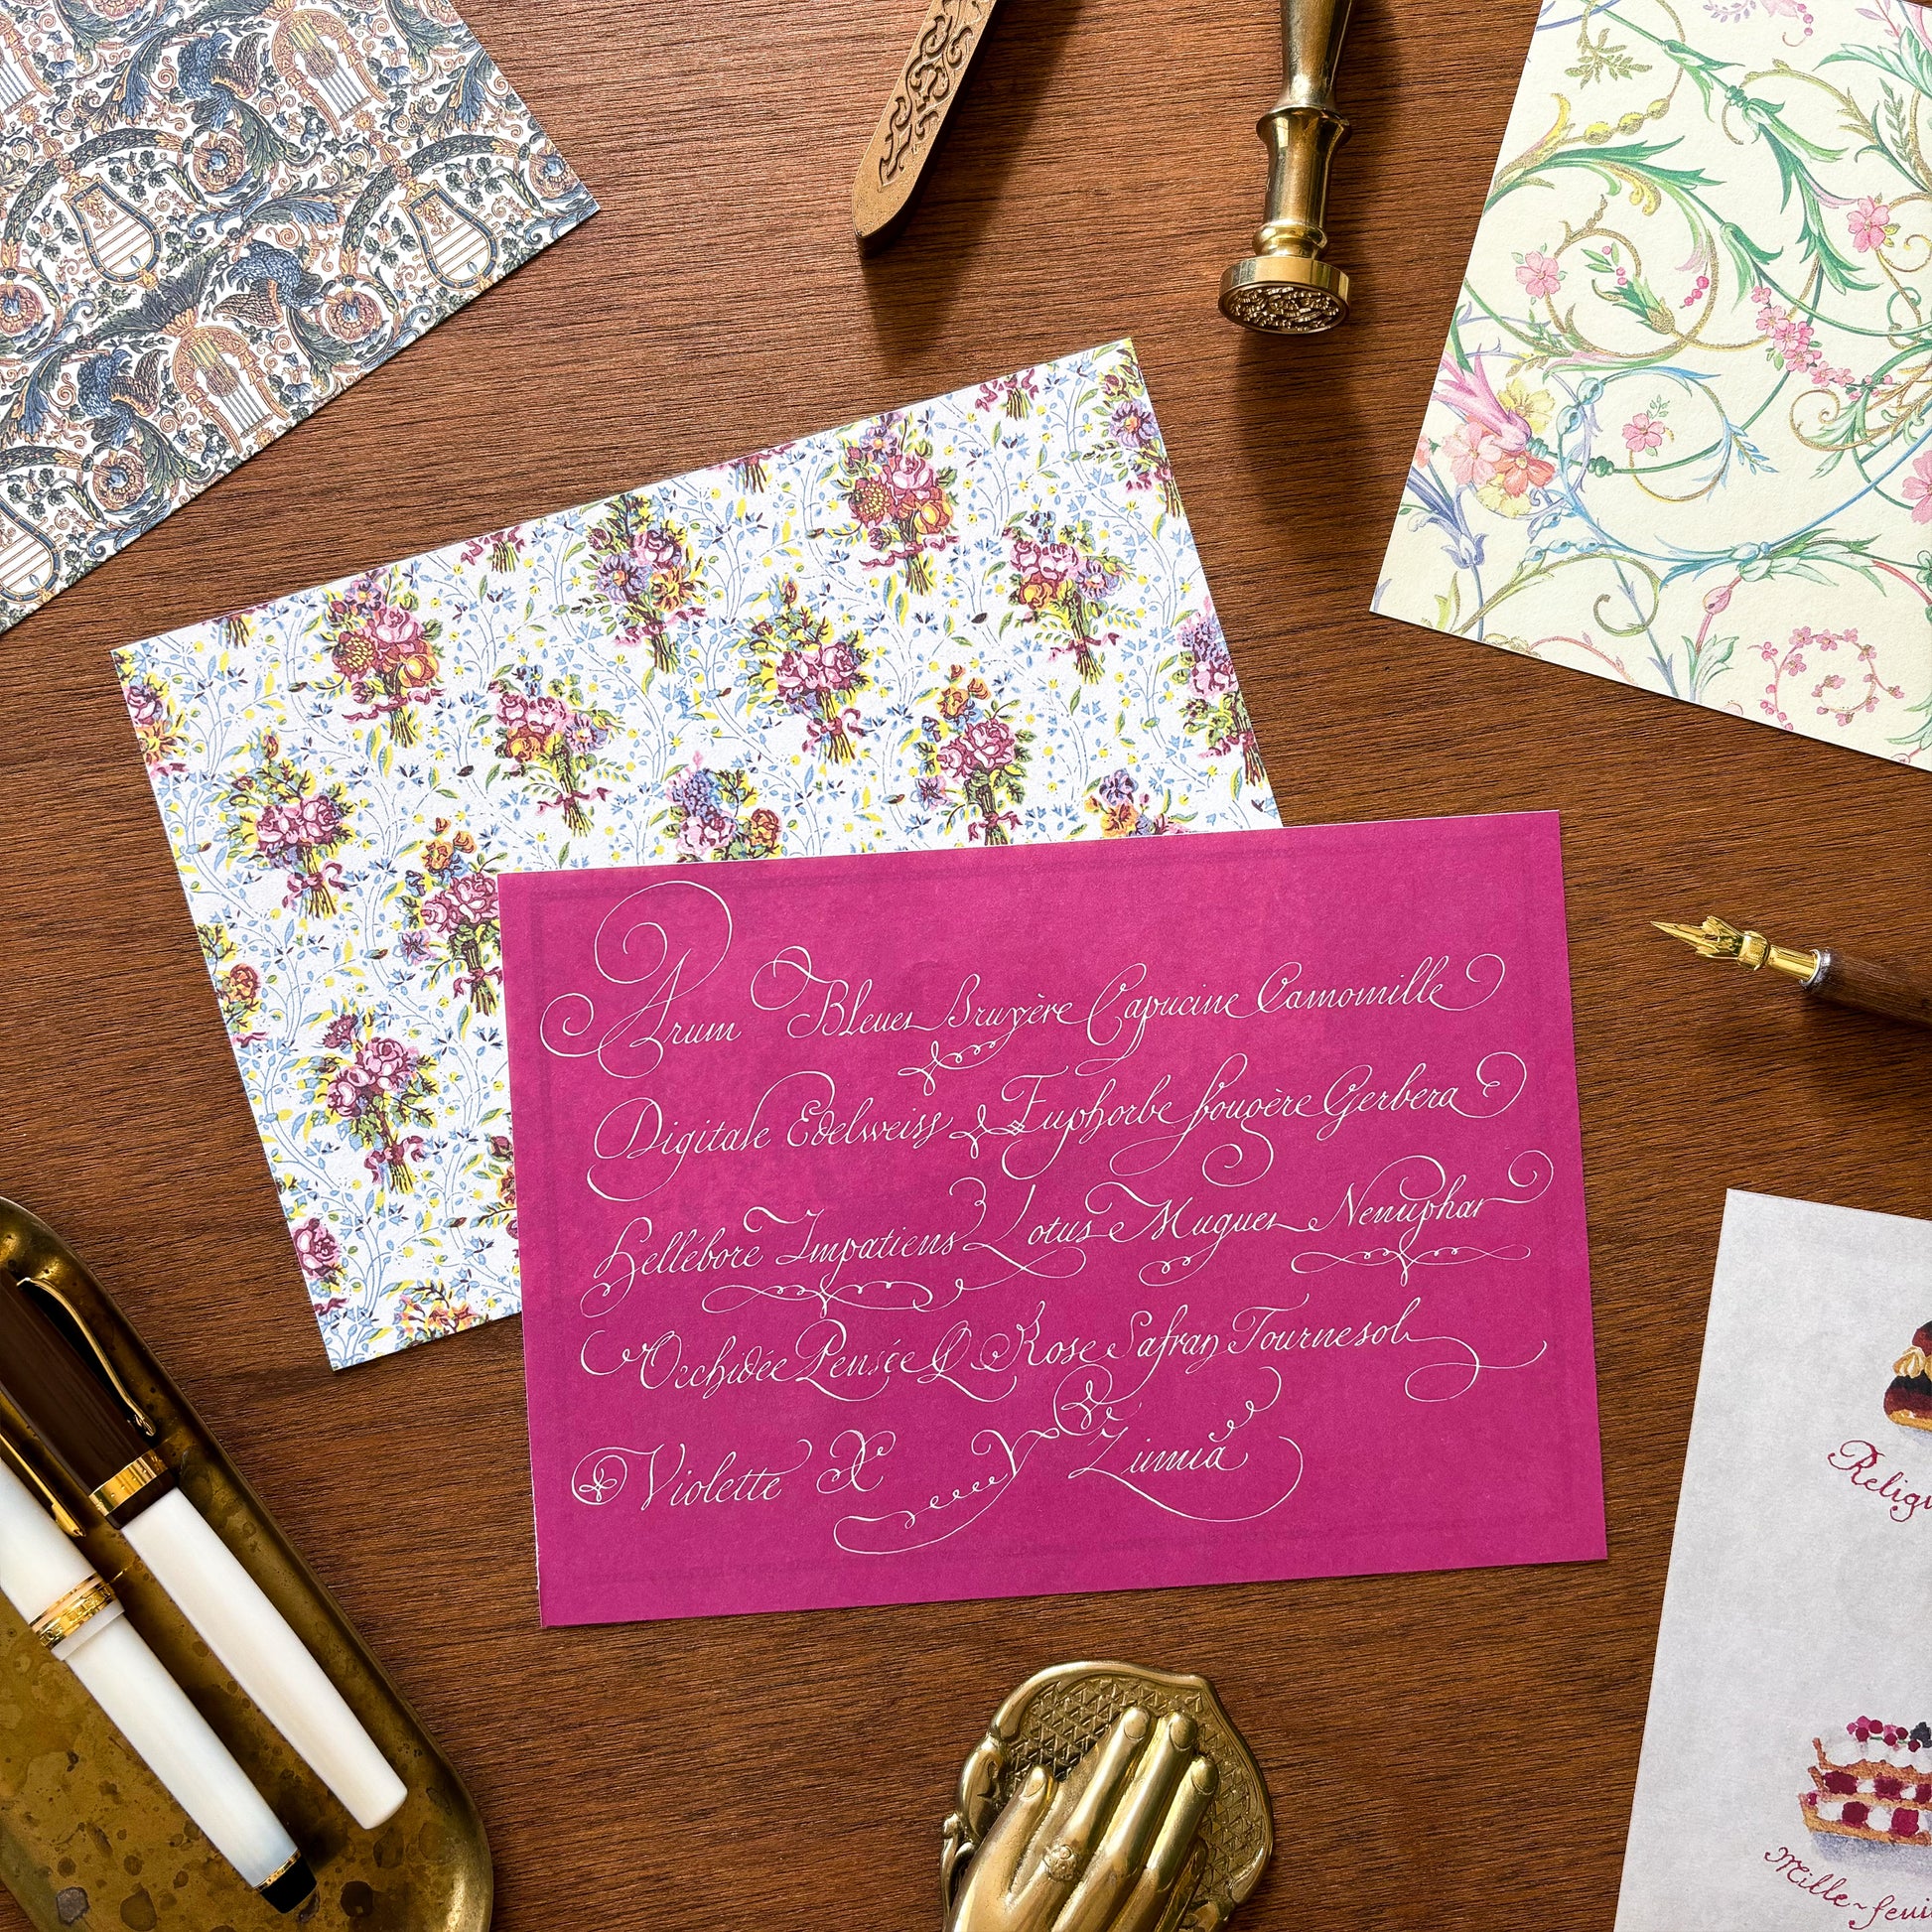 Arum Bleuet Bruyère Capucine Camomille
Digitale Edelweiss Euphorbe Fougère Gerbera
Hellébore Impatiens Lotus Muguet Nenuphar
Orchidée Pensée Q Rose Safran Tournesol
Violette X Y Zinnia
Religi
Mille-feui